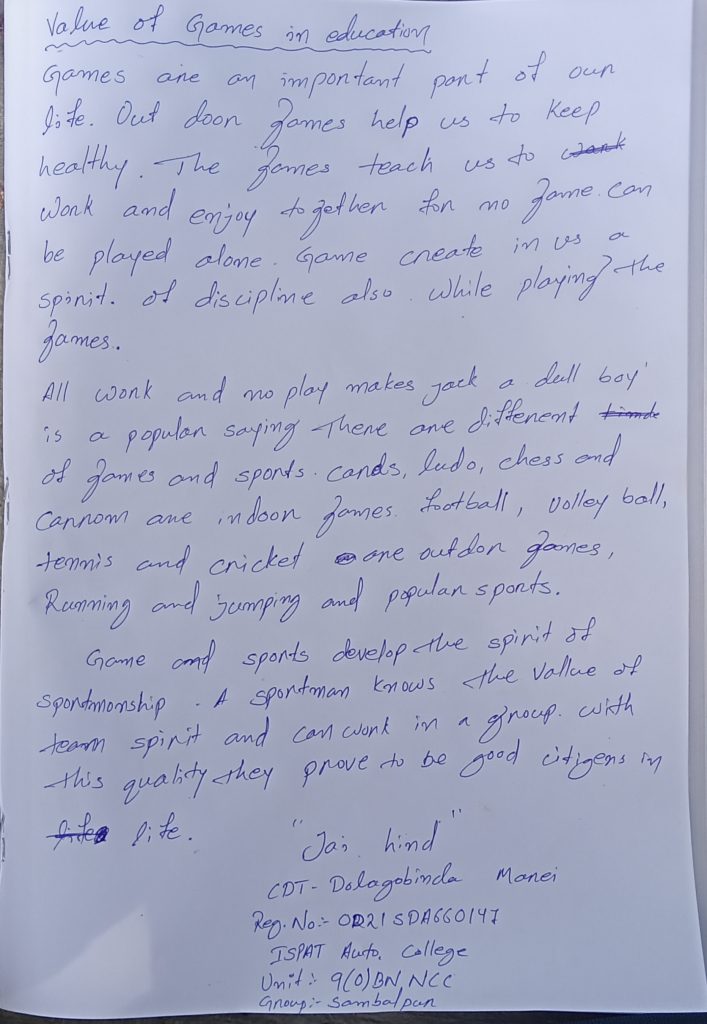 Value of Games in education
Games are an important part of our
life. Out door games help us to keep
healthy. The games teach us to work
work and enjoy together for no game can
be played alone. Game create in us a
spirit. of discipline also. while playing the
games.
All work and no play makes jack a dull boy'
is a popular saying There are different
of games and sports. cards, ludo, chess and
carrom are indoor games. football, volley ball,
tennis and cricket are outdor games,
Running and jumping and popular sports.
Game and sports develop the spirit of
sportmonship. A sportman knows the vallue of
team spirit and can work in a group. with
this quality they prove to be good citizens in
life life.
"Jai hind"
CDT- Dolagobinda Manei
Reg. No:- OD21SDA660147
ISPAT Auto. College
Unit:- 9(O)BN, NCC
Group:- Sambalpur